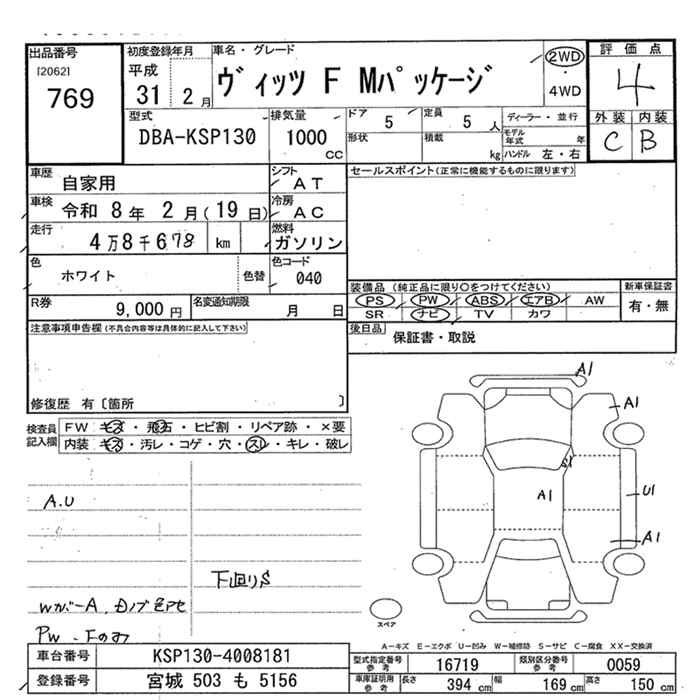 出品番号 初度登録年月 車名・グレード 評価点
[2062] 平成 ヴィッツ F Mパッケージ 2WD 4
769 31 2月 ・ 4WD
型式 排気量 ドア 5 定員 5人 ディーラー・並行 外装 内装
DBA-KSP130 1000 cc 形状 積載 kg モデル年式 年 C B
ハンドル 左・右
車歴 自家用 シフト AT セールスポイント(正常に機能するものに限ります)
車検 令和 8年 2月(19日) 冷房 AC
走行 4万8千678 km 燃料 ガソリン
色 ホワイト 色替 色コード 040 装備品(純正品に限り○をつけてください) 新車保証書
PS PW ABS エアB AW 有・無
R券 9,000円 名変通知期限 月 日 SR ナビ TV カワ
注意事項申告欄(不具合内容等は具体的に記入して下さい) 後日品 保証書・取説
修復歴 有〔箇所 〕
検査員 FW キズ・飛石・ヒビ割・リペア跡・×要
記入欄 内装 キズ・汚レ・コゲ・穴・スレ・キレ・破レ
A1
A1
S1
A1
U1
A1
A.U
下回りS
Wカバ-A、
PW、Fのみ
スペア
A-キズ E-エクボ U-凹み W-補修跡 S-サビ C-腐食 XX-交換済
車台番号 KSP130-4008181 型式指定番号 参考 16719 類別区分番号 参考 0059
登録番号 宮城 503 も 5156 車庫証明用 参考 長さ 394 cm 幅 169 cm 高さ 150 cm